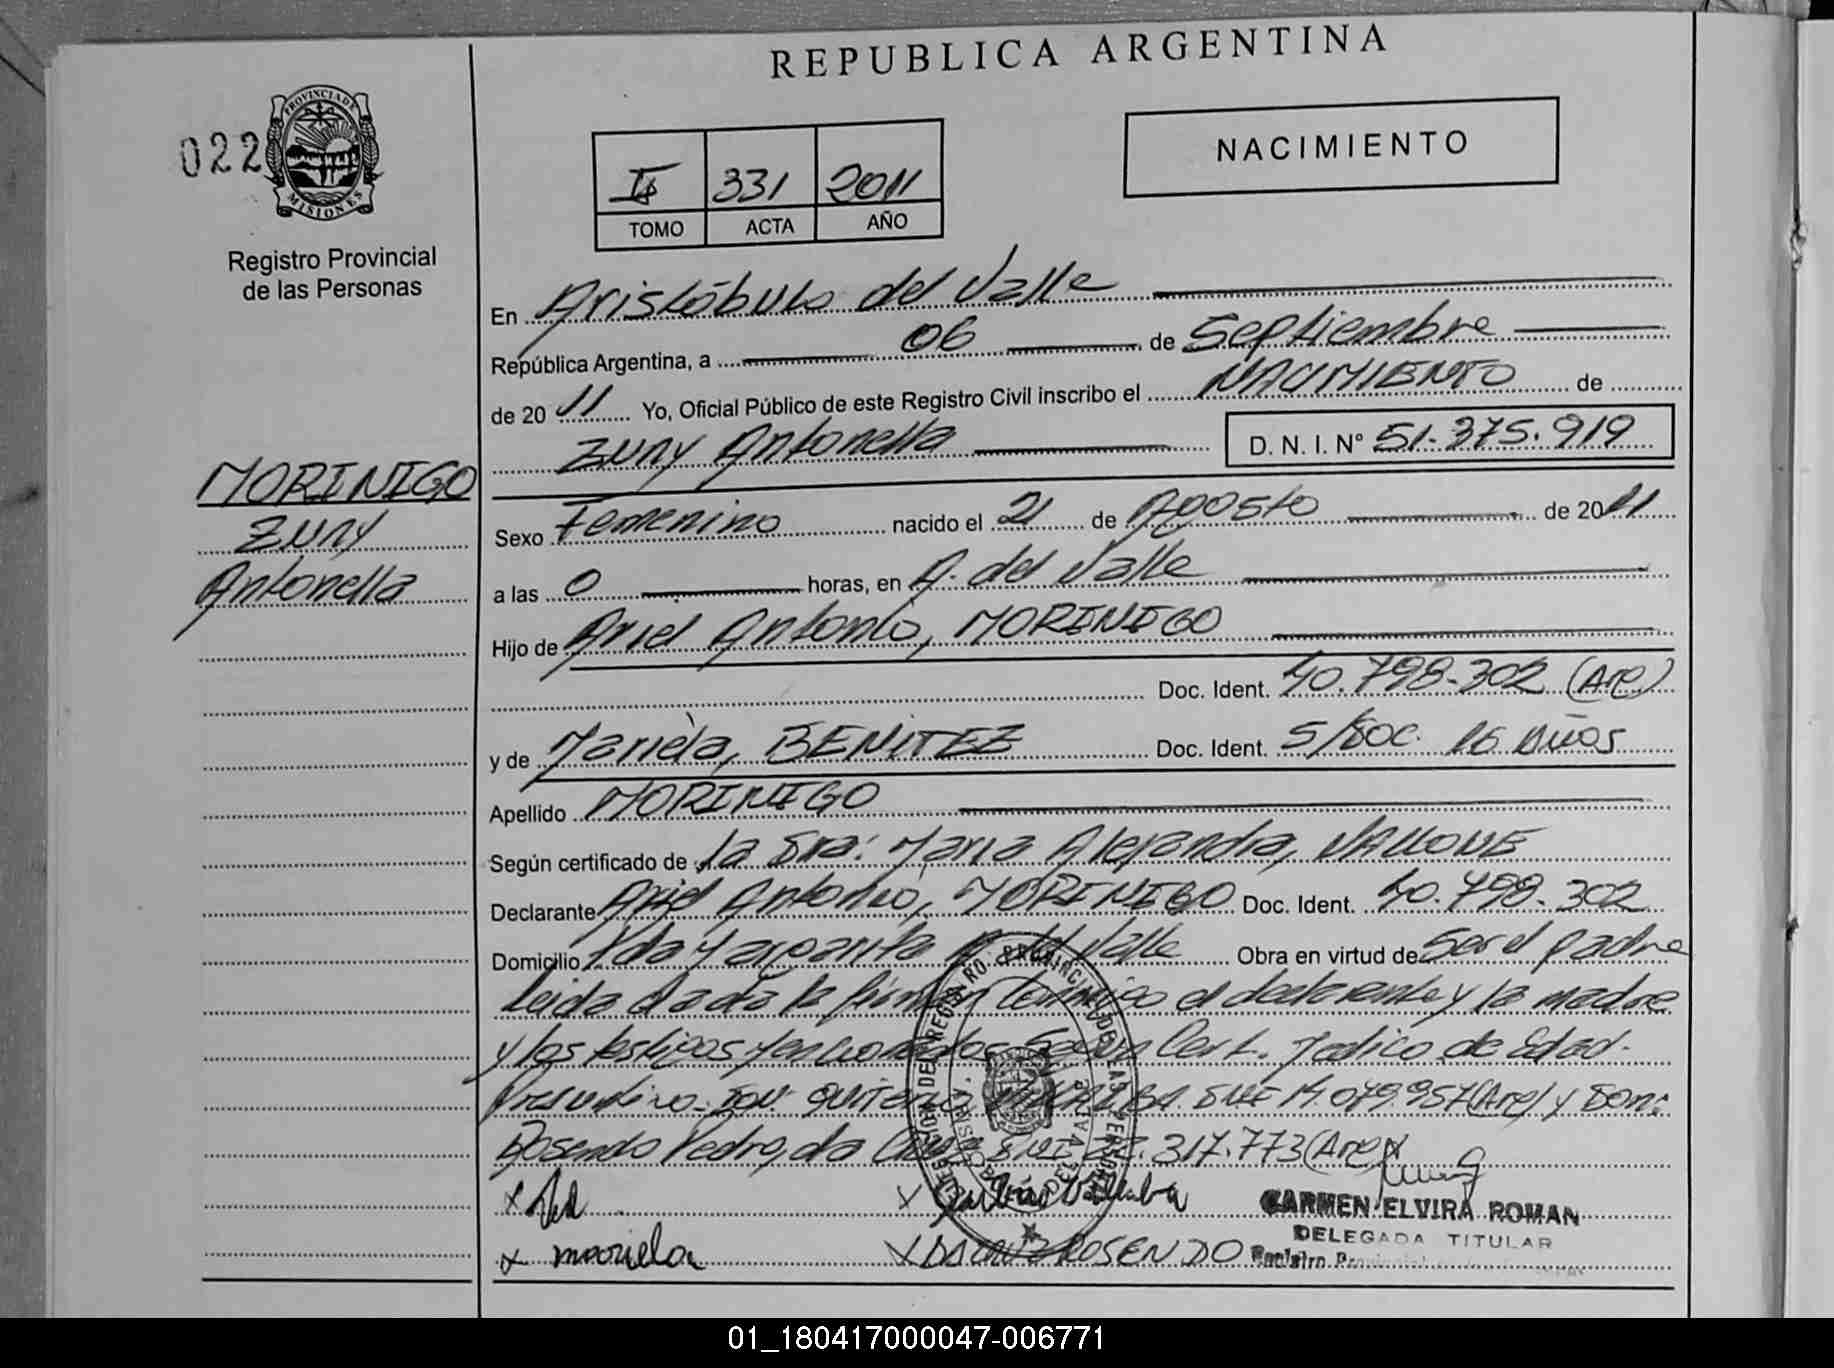 REPUBLICA ARGENTINA
022
PROVINCIA DE MISIONES
Registro Provincial
de las Personas
II 331 2011
TOMO ACTA AÑO
NACIMIENTO
En Aristóbulo del Valle
República Argentina, a 06 de Septiembre
de 2011 Yo, Oficial Público de este Registro Civil inscribo el NACIMIENTO de
Zuny Antonella D. N. I. Nº 51.375.919
MORINIGO
Zuny
Antonella
Sexo Femenino nacido el 21 de Agosto de 2011
a las 0 horas, en A. del Valle
Hijo de Ariel Antonio, MORINIGO
Doc. Ident. 40.798.302 (Arg)
y de Mariela, BENITEZ Doc. Ident. S/Doc. 16 Años
Apellido MORINIGO
Según certificado de la Sra: Maria Alejandra, VALLONE
Declarante Ariel Antonio, MORINIGO Doc. Ident. 40.798.302
Domicilio Valle Obra en virtud de Ser el padre
Leida el acta la firman conmigo el declarante y la madre
y los testigos mencionados Según Cert. Medico de Edad
Don: 14.079.957 (Arg) y Don:
Rosendo Pedro, da Cruz DNI 317.773 (Arg)
x Ariel x Villalba
CARMEN ELVIRA ROMAN
DELEGADA TITULAR
x mariela x DA CRUZ ROSENDO Registro
01_180417000047-006771